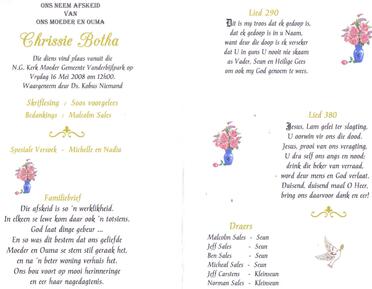 ONS NEEM AFSKEID
VAN
ONS MOEDER EN OUMA
Chrissie Botha
Die diens vind plaas vanuit die
N.G. Kerk Moeder Gemeente Vanderbijlpark op
Vrydag 16 Mei 2008 om 12h00.
Waargeneem deur Ds. Kobus Niemand
Skriflesing : Soos voorgelees
Bedankings : Malcolm Sales
Spesiale Versoek - Michelle en Nadia
Familiebrief
Die afskeid is so 'n werklikheid.
In elkeen se lewe kom daar ook 'n totsiens.
God laat dinge gebeur ...
En so was dit bestem dat ons geliefde
Moeder en Ouma se stem stil geraak het,
en na 'n beter woning verhuis het.
Ons bou voort op mooi herinneringe
en eer haar nagedagtenis.
Lied 290
Dit is my troos dat ek gedoop is,
dat ek gedoop is in u Naam,
want deur die doop is ek verseker
dat U in guns U nooit nie skaam
as Vader, Seun en Heilige Gees
om ook my God genoem te wees.
Lied 380
Jesus, Lam gelei ter slagting,
U oorwin vir ons die dood.
Jesus, prooi van ons veragting,
U dra self ons angs en nood;
drink die beker van verraad,
word deur mens en God verlaat.
Duisend, duisend maal O Heer,
bring ons daarvoor dank en eer!
Draers
Malcolm Sales - Seun
Jeff Sales - Seun
Ben Sales - Seun
Micheal Sales - Seun
Jeff Carstens - Kleinseun
Norman Sales - Kleinseun